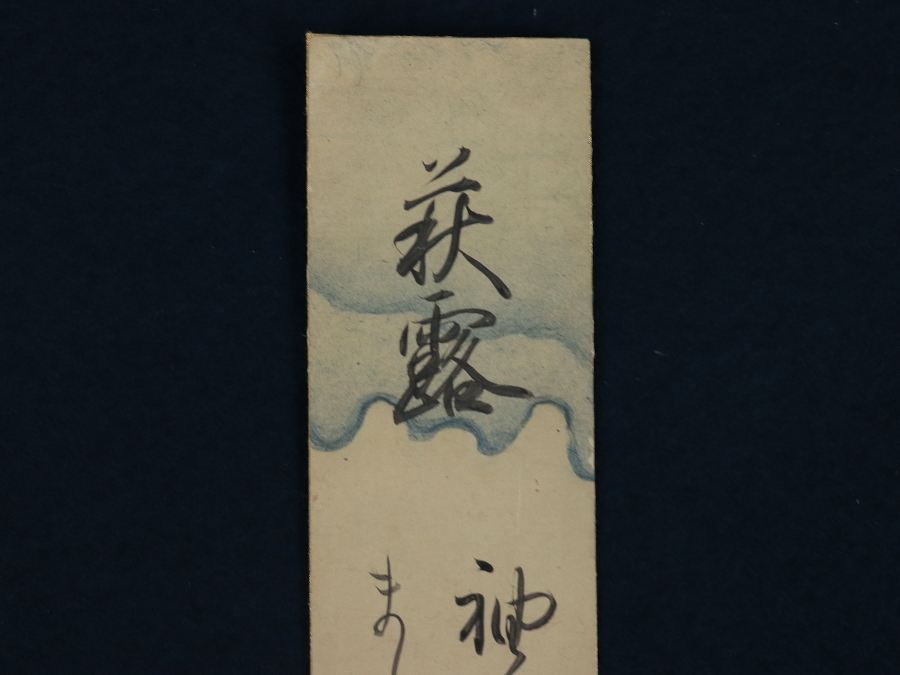 萩露
袖
ま